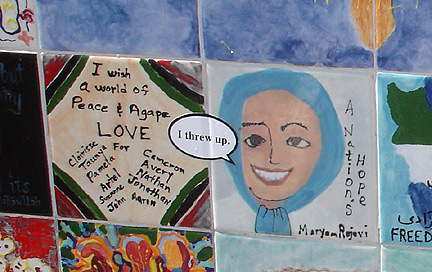 I wish
a world of
Peace & Agape
LOVE
FOR
Clairisse
Tawnya
Pamela
Artel
Suzanne
John
Cameron
Avery
Nathan
Jonathan
Aaron
I threw up.
A Nations
Hope
Maryam Rajavi
its
FREED